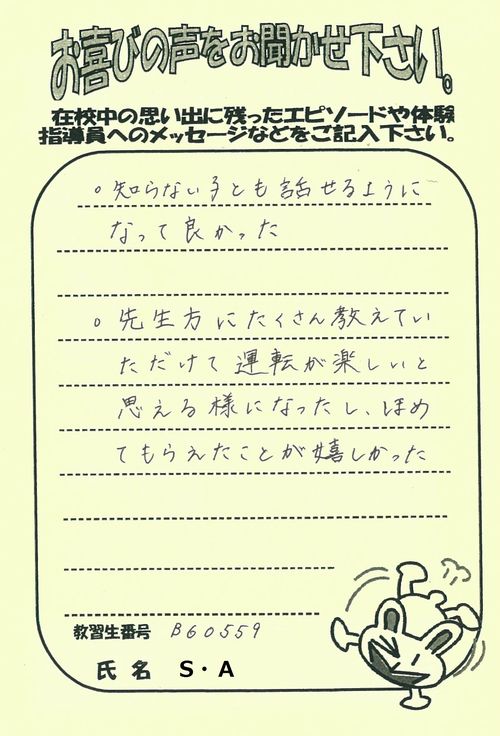 お喜びの声をお聞かせ下さい。
在校中の思い出に残ったエピソードや体験
指導員へのメッセージなどをご記入下さい。
○知らない子とも話せるように
なって良かった
○先生方にたくさん教えてい
ただけて運転が楽しいと
思える様になったし、ほめ
てもらえたことが嬉しかった
教習生番号 B60559
氏名 S・A